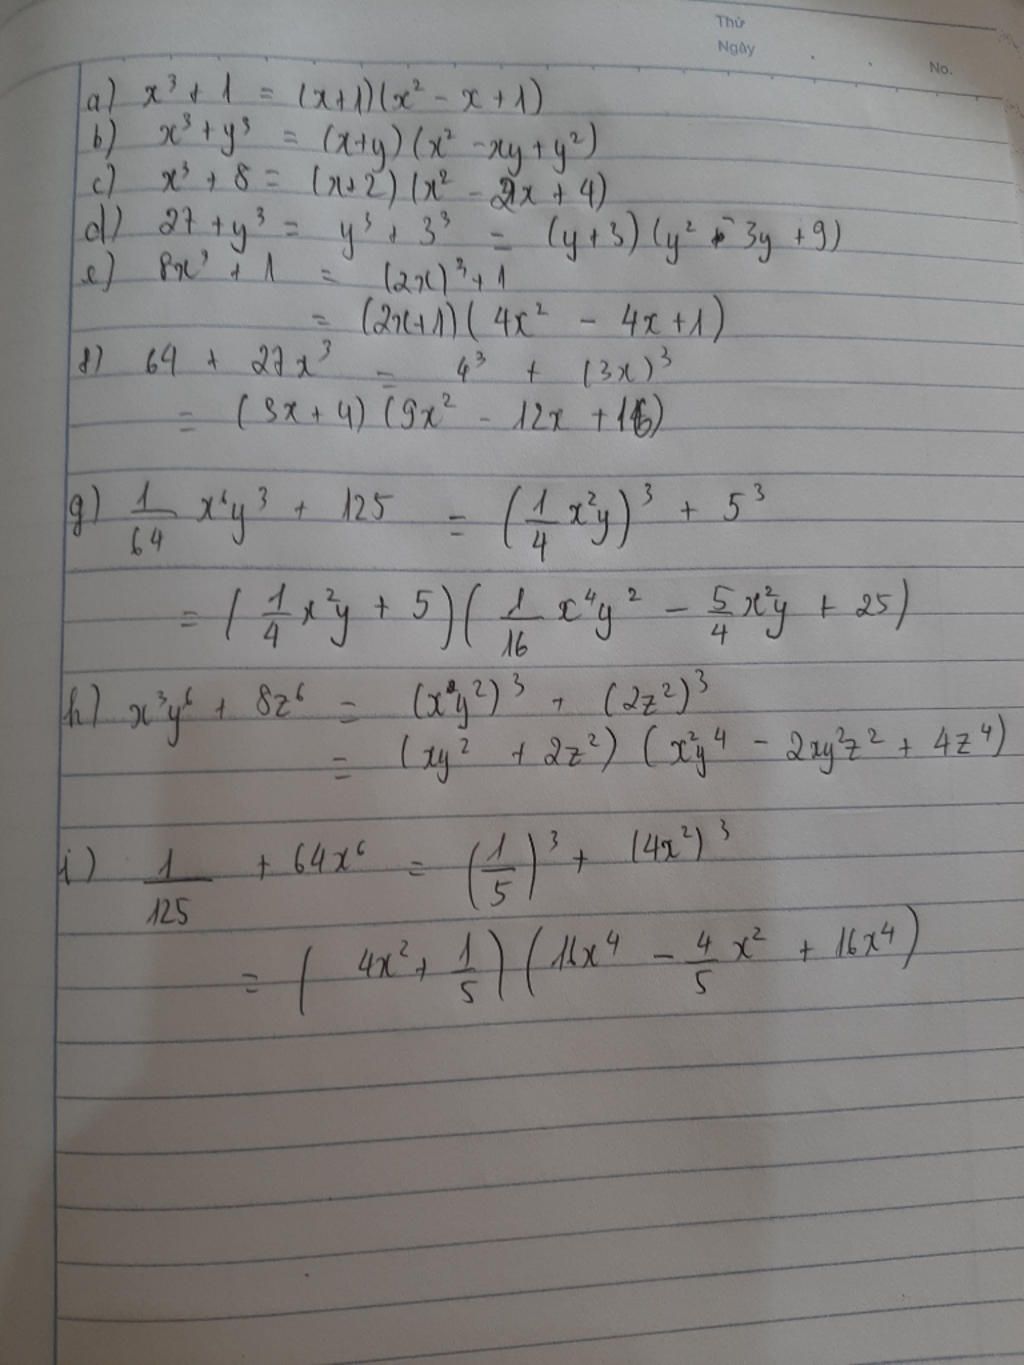 Thứ
Ngày
No.
a) x³ + 1 = (x+1)(x² - x + 1)
b) x³ + y³ = (x+y)(x² - xy + y²)
c) x³ + 8 = (x+2)(x² - 2x + 4)
d) 27 + y³ = y³ + 3³ = (y+3)(y² - 3y + 9)
e) 8x³ + 1 = (2x)³ + 1
= (2x+1)(4x² - 4x + 1)
f) 64 + 27x³ = 4³ + (3x)³
= (3x + 4)(9x² - 12x + 16)
g) 1/64 x⁶y³ + 125 = (1/4 x²y)³ + 5³
= (1/4 x²y + 5)(1/16 x⁴y² - 5/4 x²y + 25)
h) x³y⁶ + 8z⁶ = (xy²)³ + (2z²)³
= (xy² + 2z²)(x²y⁴ - 2xy²z² + 4z⁴)
i) 1/125 + 64x⁶ = (1/5)³ + (4x²)³
= (4x² + 1/5)(16x⁴ - 4/5 x² + 16x⁴)